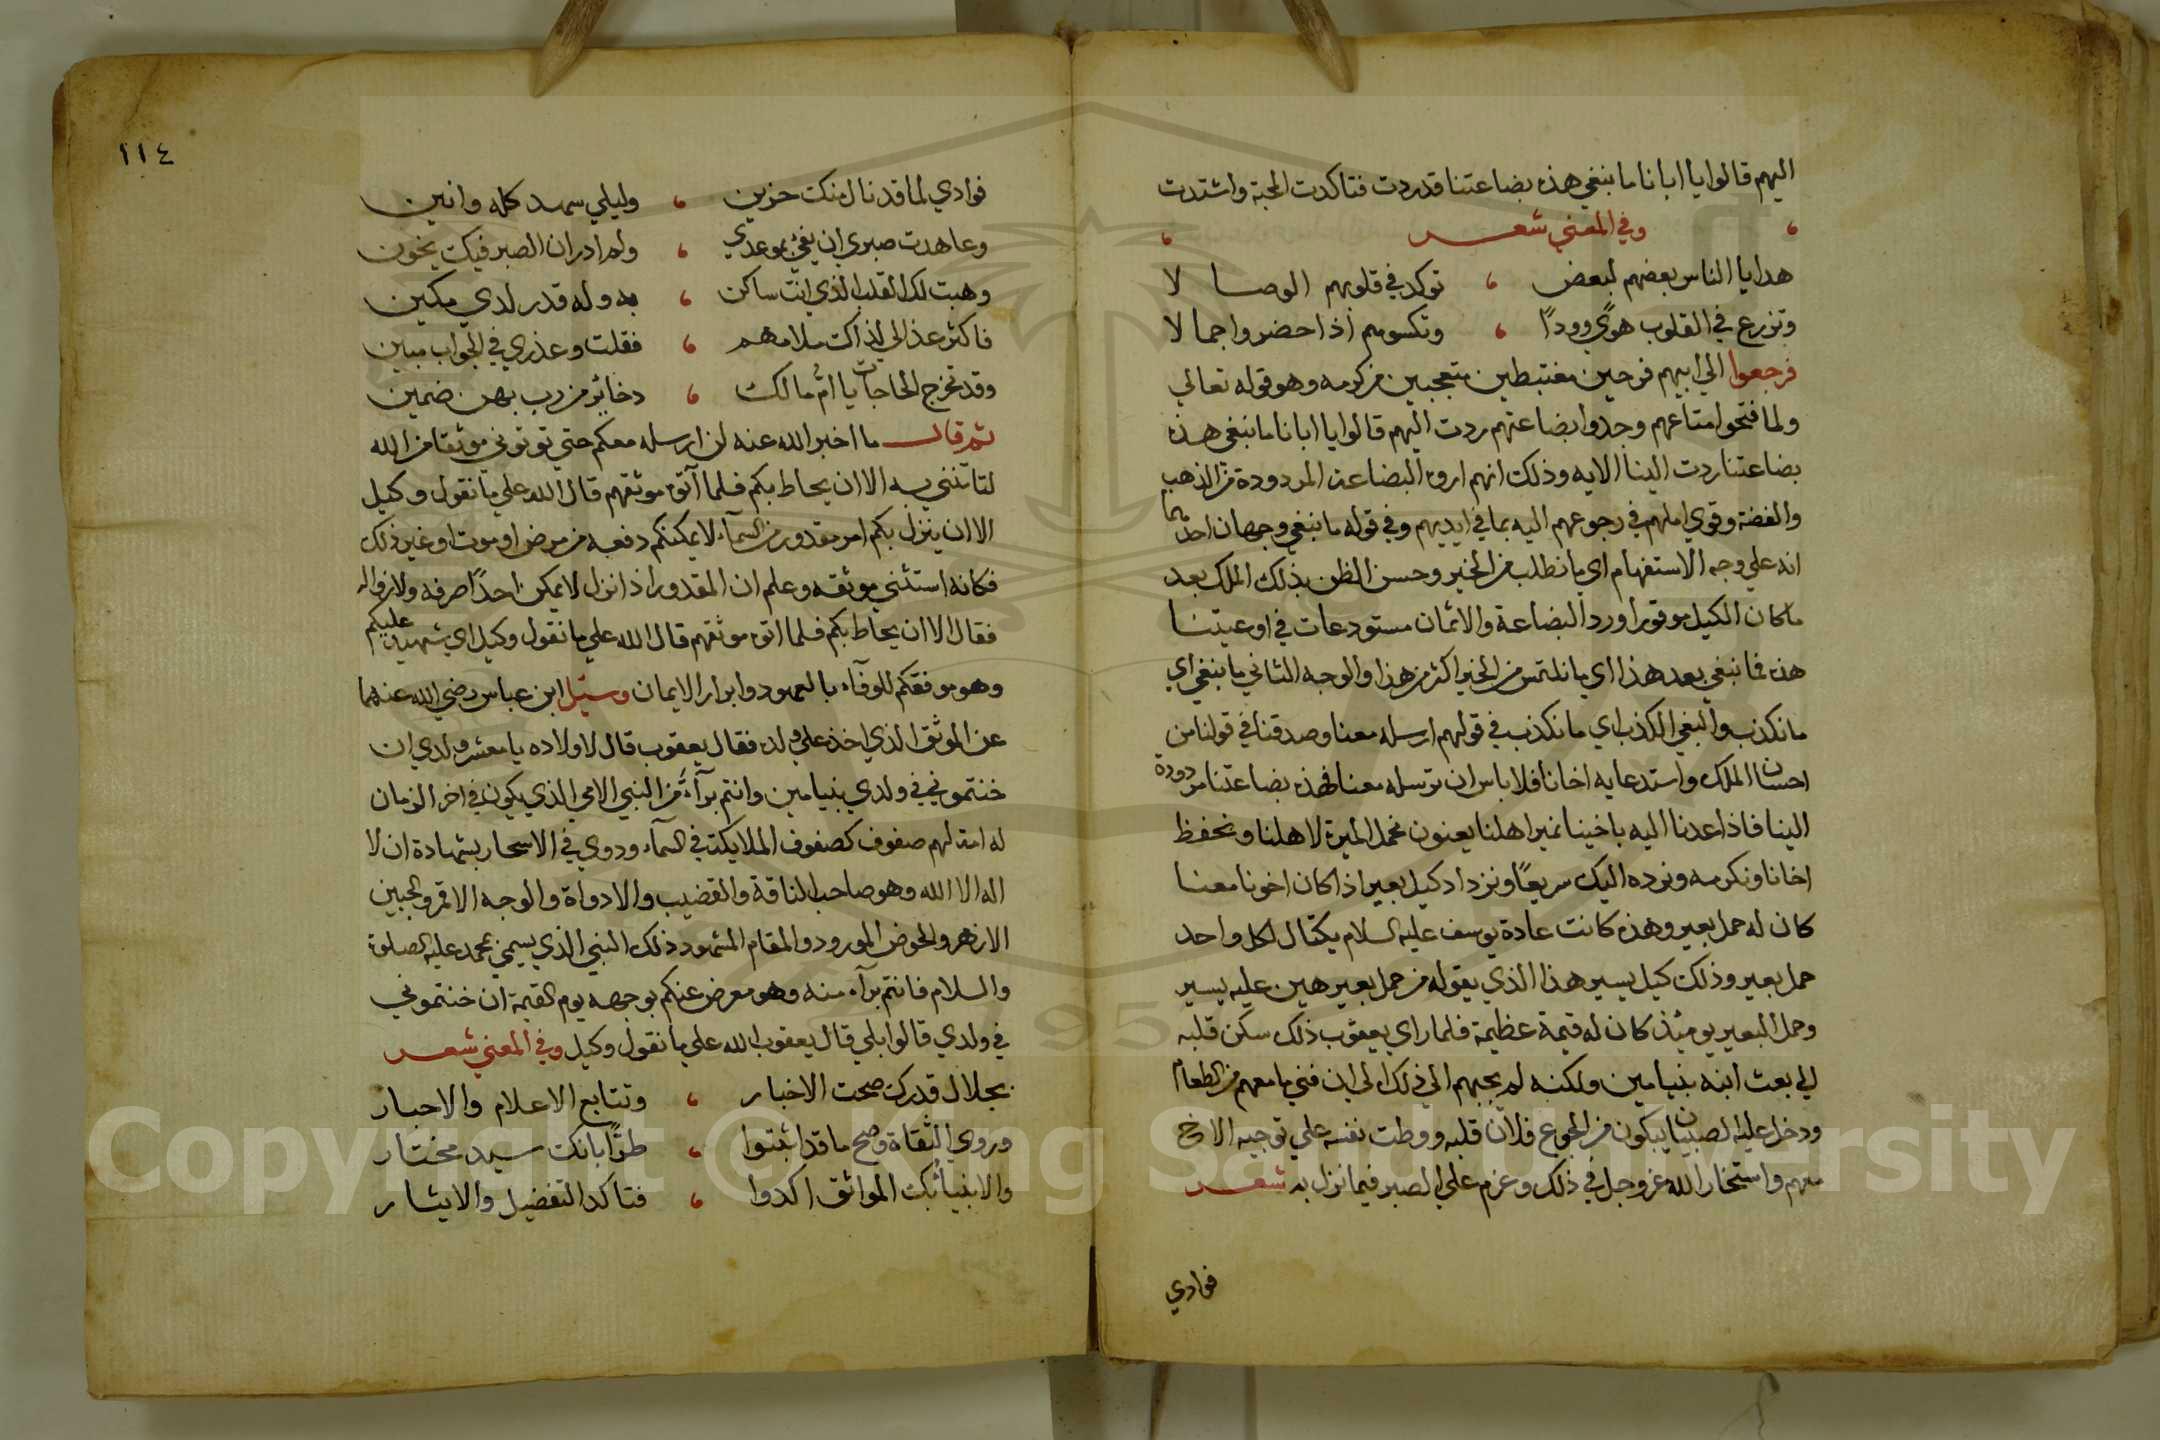 اليهم قالوا يا ابانا ما نبغي هذه بضاعتنا قد ردت فتاكدت المحبة واشتدت
، وفي المعني شعر ،
هدايا الناس بعضهم لبعض ، توكد في قلوبهم الوصا لا
وتزرع في القلوب هوًي وودًا ، وتكسوهم اذا حضروا جما لا
فرجعوا الي ابيهم فرحين مغتبطين متعجبين من كرمه وهو قوله تعالي
ولما فتحوا متاعهم وجدوا بضاعتهم ردت اليهم قالوا يا ابانا ما نبغي هذه
بضاعتنا ردت الينا الايه وذلك انهم اروه البضاعة المردودة من الذهب
والفضة وقوي املهم في رجوعهم اليه بما في ايديهم وفي قوله ما نبغي وجهان احدهما
انه علي وجه الاستفهام اي ما نطلب من الخير وحسن الظن بذلك الملك بعد
ما كان الكيل موقورا ورد البضاعة والاثمان مستودعات في اوعيتنا
هذه فما نبغي بعد هذا اي ما نلتمس من الخير اكثر من هذا والوجه الثاني ما نبغي اي
ما نكذب والبغي الكذب اي ما نكذب في قولهم ارسله معنا وصدقنا في قولنا من
احسان الملك واستدعايه اخانا فلا باس ان ترسله معنا فهذه بضاعتنا مردودة
الينا فاذا عدنا اليه باخينا نمير اهلنا يعنون نحمل الميرة لاهلنا ونحفظ
اخانا ونكرمه ونرده اليك سريعًا ونزداد كيل بعير اذا كان اخونا معنا
كان له حمل بعير وهذه كانت عادة يوسف عليه السلام يكتال لكل واحد
حمل بعير وذلك كيل يسير هذا الذي يقوله من حمل بعير هين عليه يسير
وحمل البعير يوميئذ كان له قيمة عظيمة فلما راي يعقوب ذلك سكن قلبه
الي بعث ابنه بنيامين ولكنه لم يجبهم الي ذلك الي ان فني ما معهم من الطعام
ودخل عليه الصبيان يبكون من الجوع فلان قلبه ووطت نفسه علي توجيه الاخ
معهم واستخار الله عز وجل في ذلك وعزم علي الصبر فيما نزل به شعر
فوادي
١١٤
فوادي لما قد نال منك حزين ، وليلي سهد كله وانين
وعاهدت صبري ان يفي بموعدي ، ولم ادر ان الصبر فيك يخون
وهبت لك القلب الذي انت ساكن ، به وله قدر لدي مكين
فاكثر عذالي لذاك ملامهم ، فقلت وعذري في الجواب مبين
وقد تخرج الحاجات يا ام مالك ، دخاير من رب بهن ضمين
ثم قال ما اخبر الله عنه لن ارسله معكم حتي توتوني موثقا من الله
لتاتنني به الا ان يحاط بكم فلما آتوه موثقهم قال الله علي ما نقول وكيل
الا ان ينزل بكم امر مقدور من السمآء لا يمكنكم دفعه من مرض او موت او غير ذلك
فكانه استثني موثقه وعلم ان المقدور اذا نزل لا يمكن احدًا صرفه ولا زواله
فقال الا ان يحاط بكم فلما اتوه موثقهم قال الله علي ما نقول وكيل اي شهيد عليكم
وهو موفقكم للوفآء بالعهود وابرار الايمان وسئيل ابن عباس رضي الله عنهما
عن الموثق الذي اخذ علي ولده فقال يعقوب قال لاولاده يا معشر ولدي ان
خنتموني في ولدي بنيامين وانتم برآءة من النبي الامي الذي يكون في اخر الزمان
له امة لهم صفوف كصفوف الملايكة في السمآء ودوي في الاسحار بشهادة ان لا
اله الا الله وهو صاحب الناقة والقضيب والادواة والوجه الاقمر والجبين
الازهر والحوض المورود والمقام المشهود ذلك النبي الذي يسمي محمد عليه الصلوة
والسلام فانتم برآء منه وهو معرض عنكم بوجهه يوم القيمة ان خنتموني
في ولدي قالوا بلي قال يعقوب الله علي ما نقول وكيل وفي المعني شعر
بجلال قدرك صحت الاخبار ، وتتابع الاعلام والاحبار
وروي الثقاة وصح ما قد اثبتوا ، طرًا بانك سيد مختار
والانبيا بك المواثق اكدوا ، فتاكد التفضيل والايثار
Copyright © King Saud University